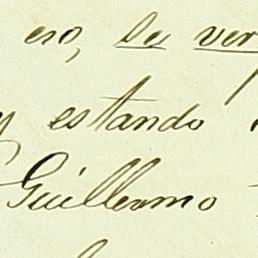 eso, de ver
y estando
Guillermo